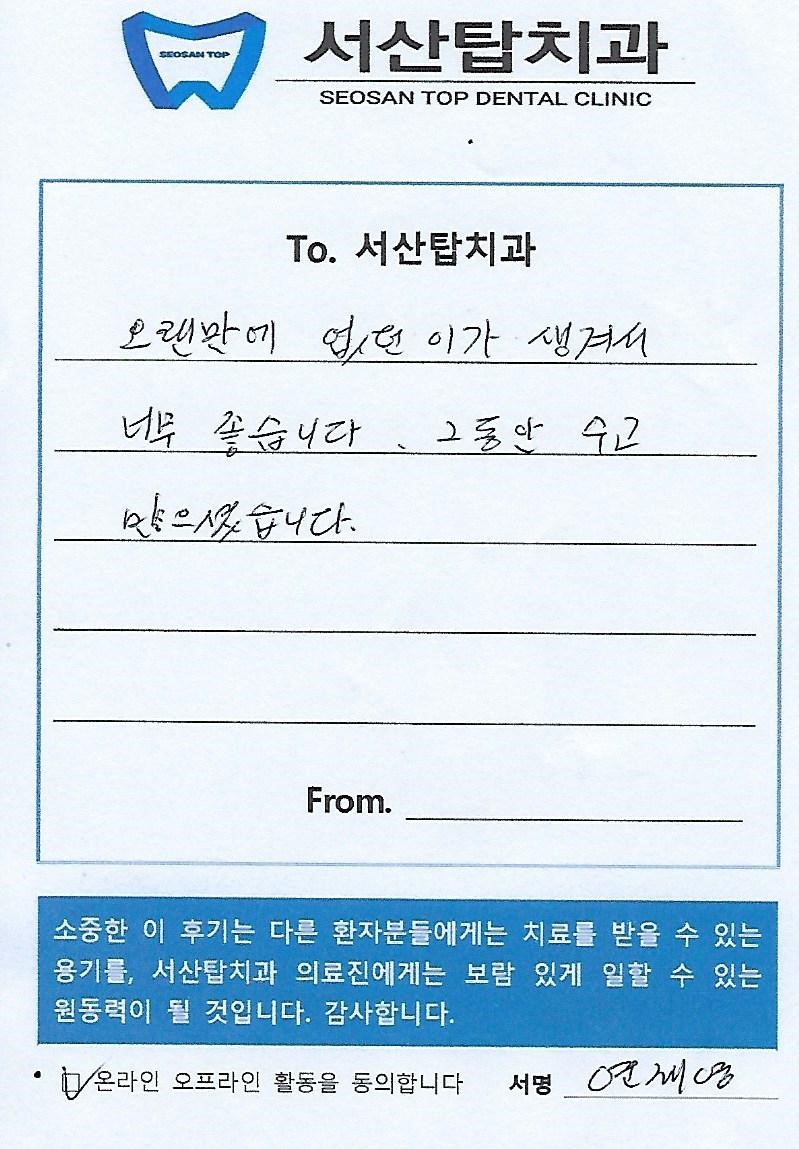 SEOSAN TOP
서산탑치과
SEOSAN TOP DENTAL CLINIC
To. 서산탑치과
오랜만에 없던 이가 생겨서
너무 좋습니다. 그동안 수고
많으셨습니다.
From.
소중한 이 후기는 다른 환자분들에게는 치료를 받을 수 있는
용기를, 서산탑치과 의료진에게는 보람 있게 일할 수 있는
원동력이 될 것입니다. 감사합니다.
온라인 오프라인 활동을 동의합니다 서명 연재영